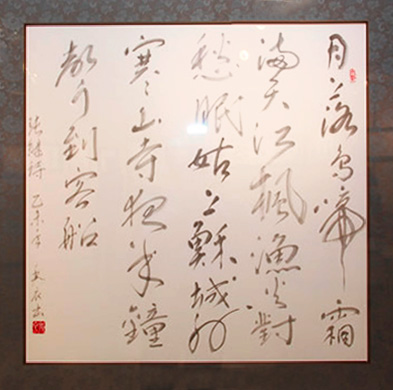 月落烏啼霜
滿天江楓漁火對
愁眠姑蘇城外
寒山寺夜半鐘
聲到客船
張繼詩 乙未年